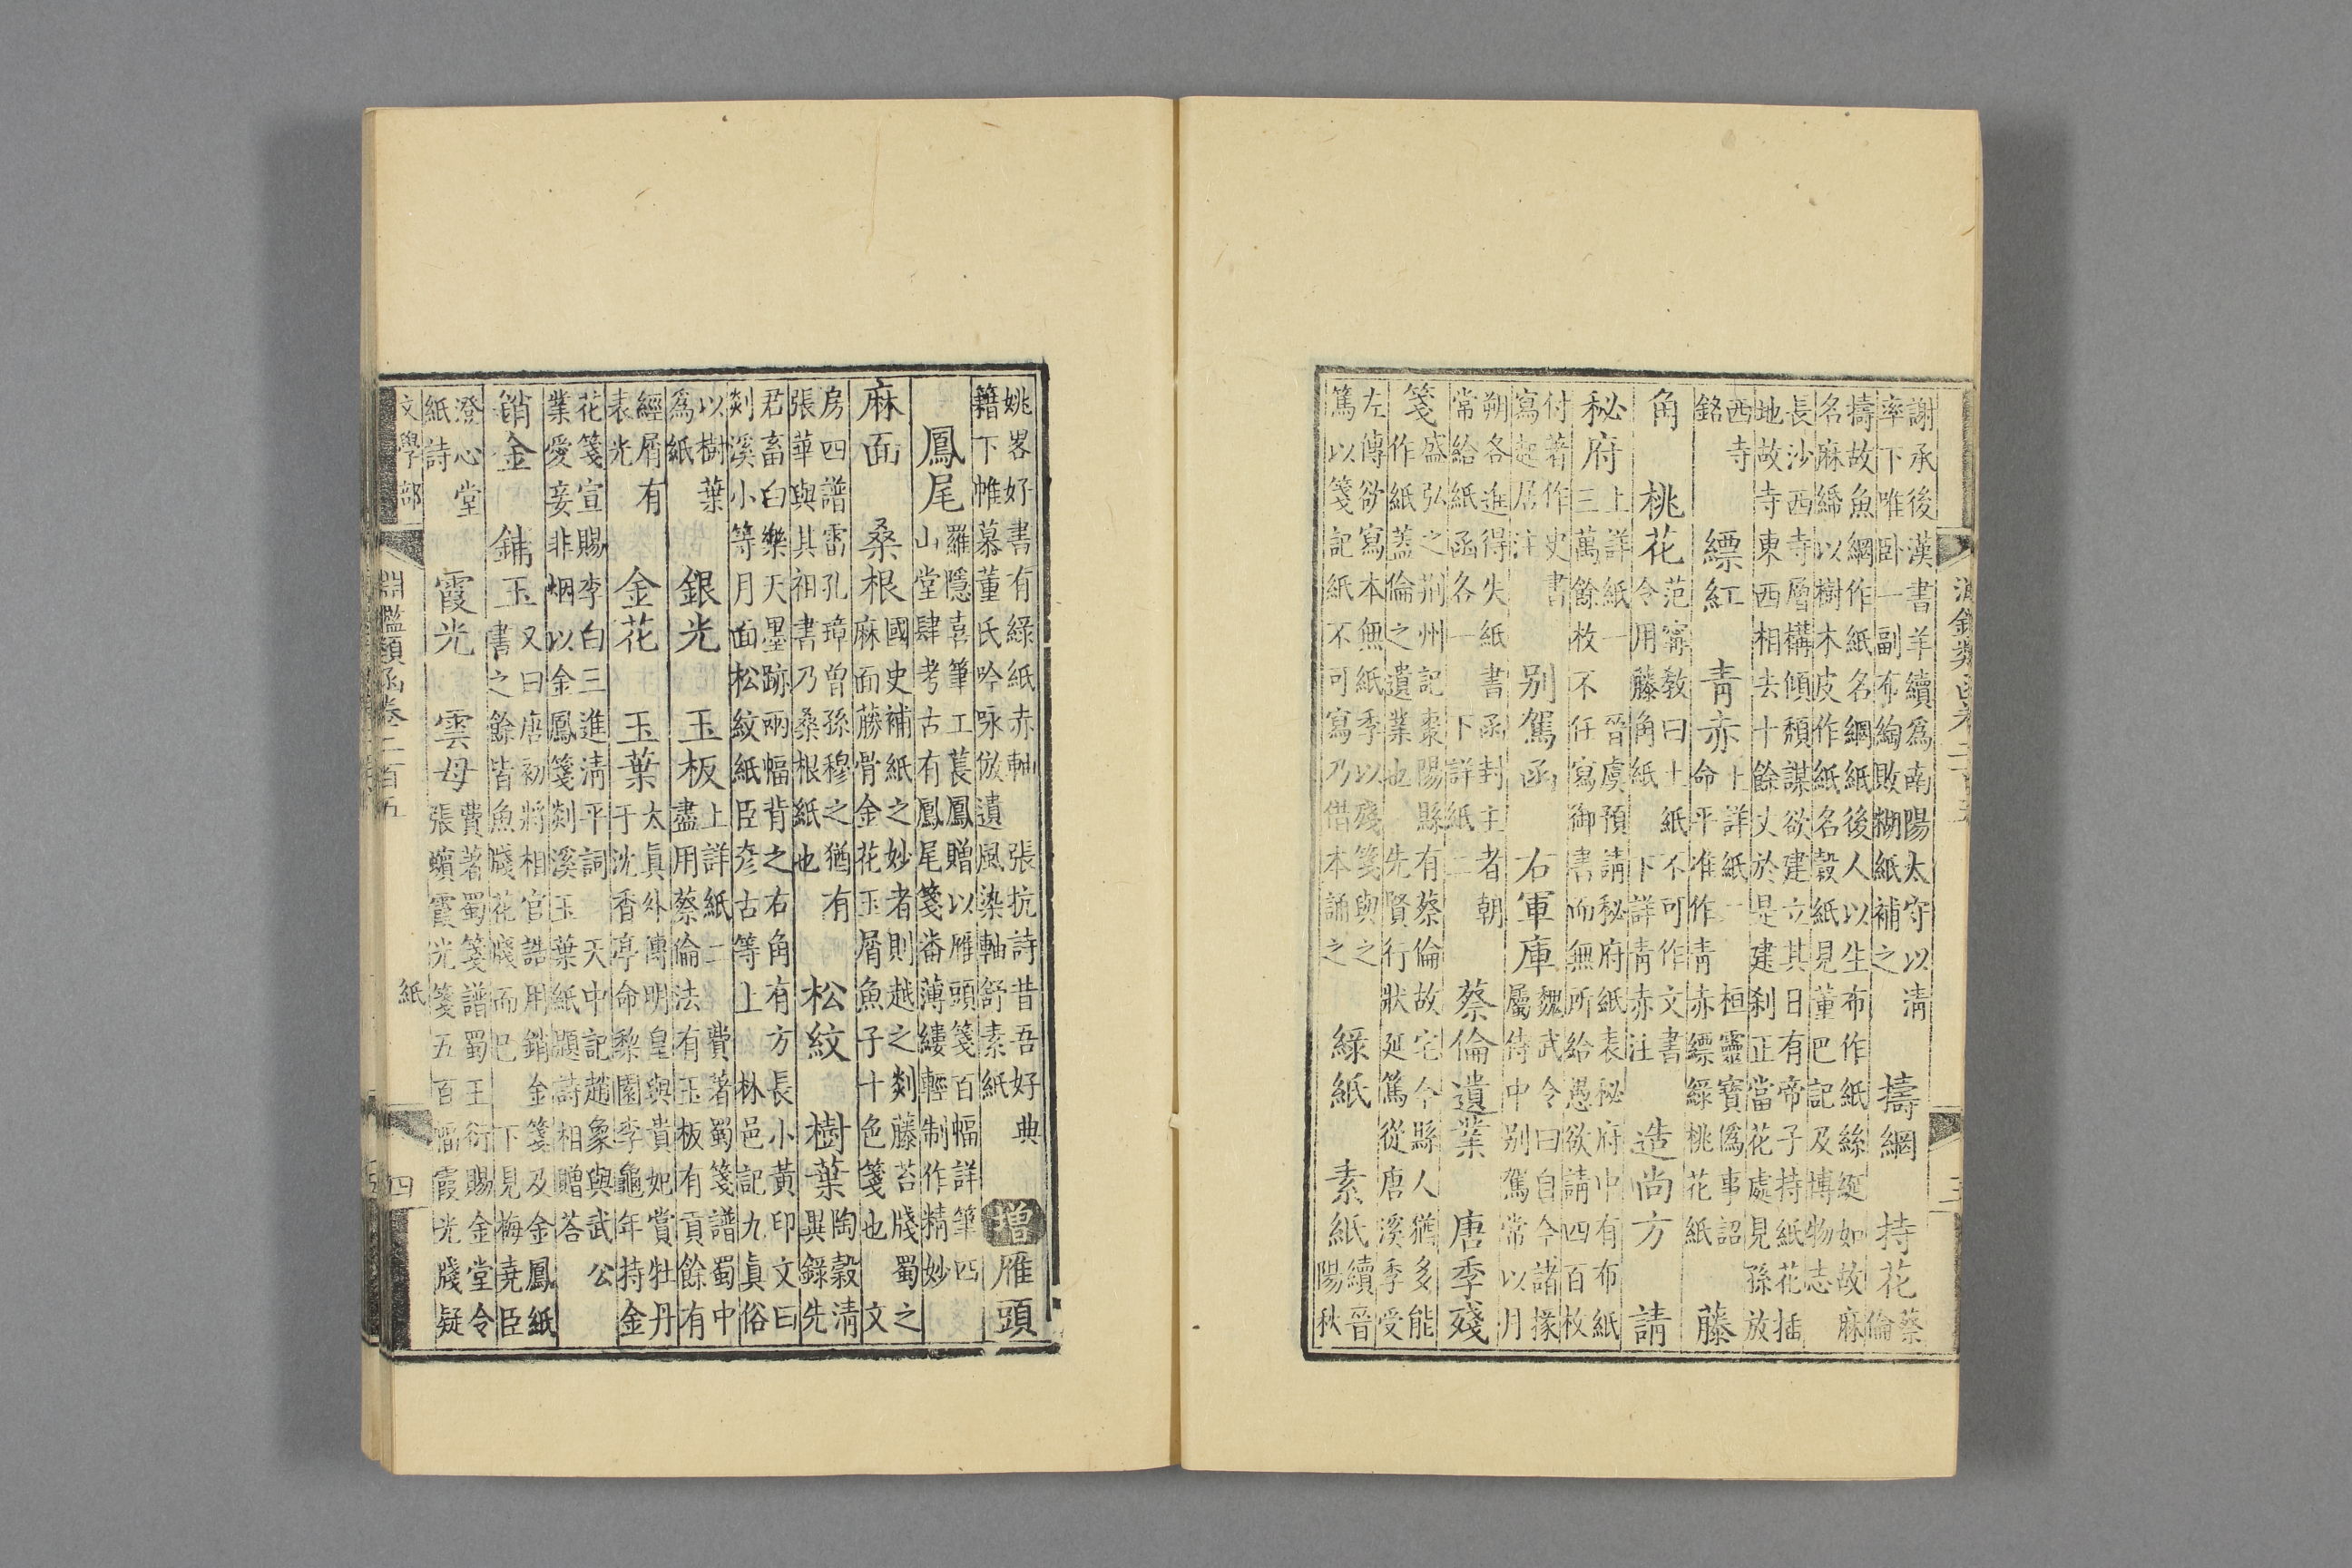 謝承後漢書羊續為南陽太守以清
率下唯卧一副布綯敗糊紙補之
擣網 持花
蔡
倫
擣故魚網作紙名網紙後人以生布作紙絲綖如故麻
名麻綈以樹木皮作紙名榖紙見董巴記及博物志
長沙西寺層構傾頹謀欲建立其日有帝子持紙花插
地故寺東西相去十餘丈於是建剎正當花處見孫放
西寺
銘
縹紅 青赤
上詳紙二 桓靈寶偽事詔
命平准作青赤縹綠桃花紙
藤
角 桃花
范甯教曰土紙不可作文書
令用藤角紙 下詳青赤注
造尚方 請
秘府
上詳紙一 晉虞預請秘府紙表秘府中有布紙
三萬餘枚不任寫御書而無所給愚欲請四百枚
付著作史書
寫起居注
别駕函 右軍庫
魏武令曰自今諸掾
屬侍中别駕常以月
朔各進得失紙書函封主者朝
常給紙函各一 下詳紙二
蔡倫遺業 唐季殘
箋
盛弘之荆州記棗陽縣有蔡倫故宅今縣人猶多能
作紙蓋倫之遺業也 先賢行狀延篤從唐溪季受
左傳欲寫本無紙季以殘箋與之
篤以箋記紙不可寫乃借本誦之
綠紙 素紙
續晉
陽秋
姚畧好書有綠紙赤軸 張抗詩昔吾好典
籍下帷慕董氏吟咏倣遺風染軸舒素紙
增 雁頭
鳳尾
羅隱喜筆工萇鳳贈以雁頭箋百幅詳筆四
山堂肆考古有鳳尾箋番薄縷輕制作精妙
麻面 桑根
國史補紙之妙者則越之剡藤苔牋蜀之
麻面藤骨金花玉屑魚子十色箋也 文
房四譜雷孔璋曾孫穆之猶有
張華與其祖書乃桑根紙也
松紋 樹葉
陶穀清
異錄先
君畜白樂天墨跡兩幅背之右角有方長小黃印文曰
剡溪小等月面松紋紙臣彥古等上 林邑記九真俗
以樹葉
為紙
銀光 玉板
上詳紙二 費著蜀箋譜蜀中
盡用蔡倫法有玉板有貢餘有
經屑有
表光
金花 玉葉
太真外傳明皇與貴妃賞牡丹
于沈香亭命棃園李龜年持金
花箋宣賜李白三進清平詞 天中記趙象與武公
業愛妾非烟以金鳳箋剡溪玉葉紙題詩相贈荅
銷金 鋪玉
又曰唐初將相官誥用銷金箋及金鳳紙
書之餘皆魚牋花牋而已 下見梅堯臣
澄心堂
紙詩
霞光 雲母
費著蜀箋譜蜀王衍賜金堂令
張蠙霞光箋五百幅霞光牋疑
文學部 淵鑑類函卷二百五 紙 四